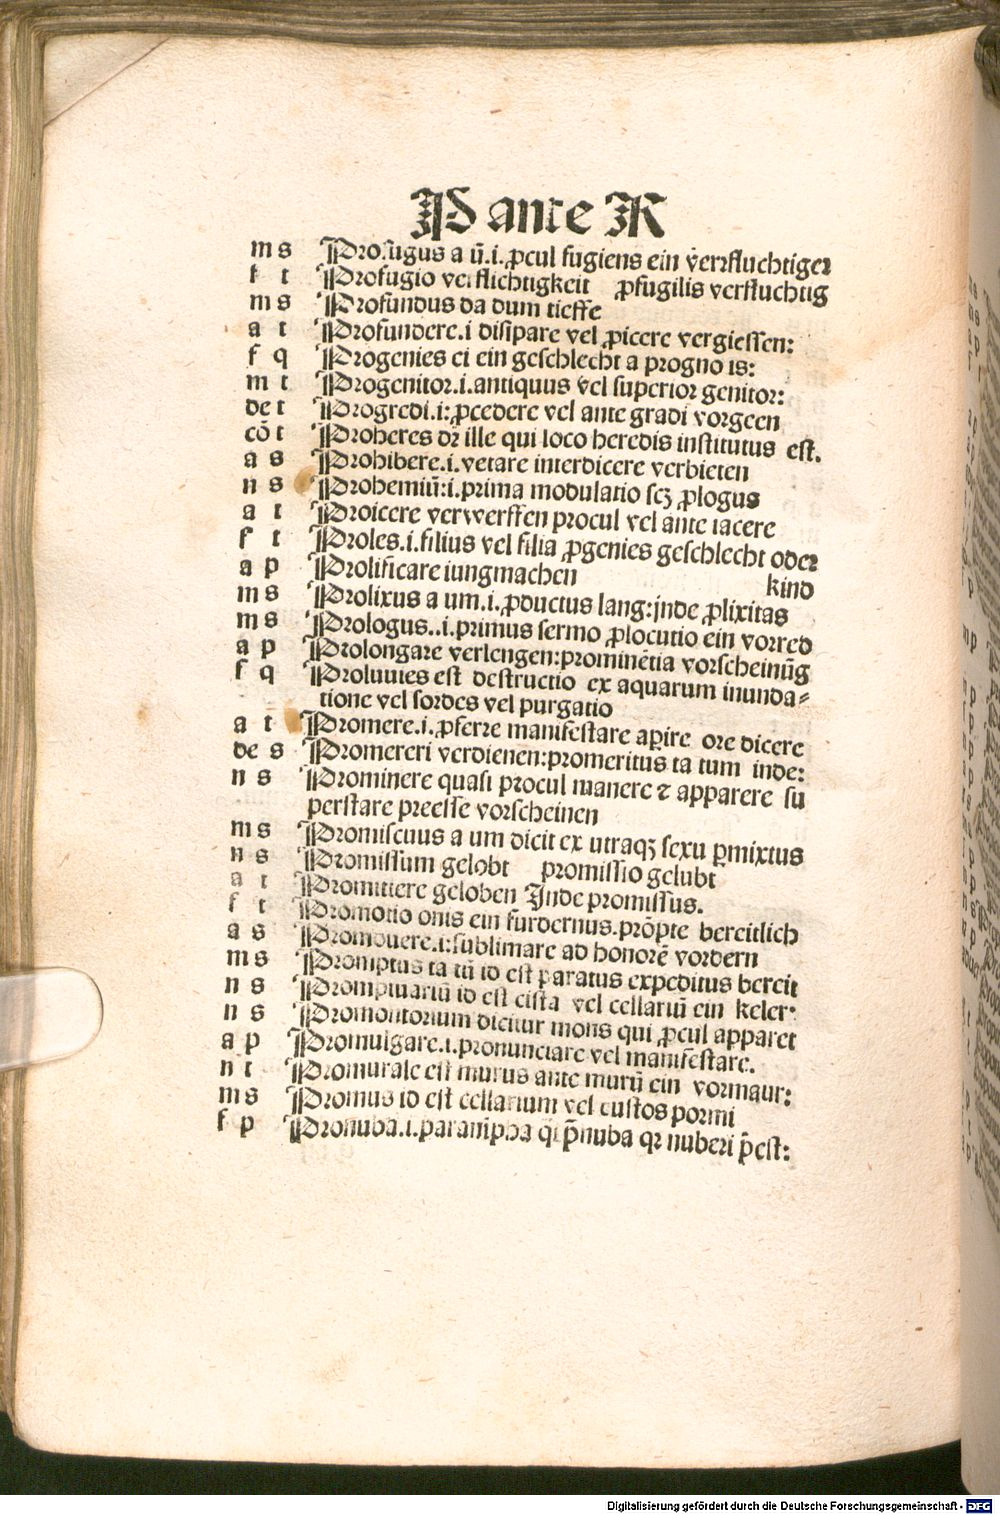 P ante R
m s Profugus a ū.i.ꝓcul fugiens ein verrfluchtiger
f t Profugio verflichtigkeit ꝓfugilis verfluchtig
m s Profundus da dum tieffe
a t Profundere.i disipare vel ꝓicere vergiessen:
f q Progenies ei ein geschlecht a progno is:
m t Progenitor.i.antiquus vel superior genitor:
de t Progredi.i:ꝓcedere vel ante gradi vorgeen
cō t Proheres dr̄ ille qui loco heredis institutus est.
a s Prohibere.i.vetare interdicere verbieten
n s Prohemiū:i.prima modulatio scꝫ ꝓlogus
a t Proicere verwerffen procul vel ante iacere
f t Proles.i.filius vel filia ꝓgenies geschlecht oder
a p Prolificare iungmachen kind
m s Prolixus a um.i.ꝓductus lang:jnde ꝓlixitas
m s Prologus..i.primus sermo ꝓlocutio ein vorred
a p Prolongare verlengen:prominētia vorscheinūg
f q Proluuies est destructio ex aquarum inunda⸗
tione vel sordes vel purgatio
a t Promere.i.ꝓferre manifestare aꝑire ore dicere
de s Promereri verdienen:promeritus ta tum inde:
n s Prominere quasi procul manere ⁊ apparere su
perstare preesse vorscheinen
m s Promiscuus a um dicit ex utraqꝫ sexu ꝑmixtus
n s Promissum gelobt promissio gelubt
a t Promittere geloben Jnde promissus.
f t Promotio onis ein furdernus.prōpte bereitlich
a s Promouere.i:sublimare ad honorē vordern
m s Promptus ta tū id est paratus expeditus bereit
n s Promptuariū id est cista vel cellariū ein keler:
n s Promontorium dicitur mons qui ꝓcul apparet
a p Promulgare.i.pronunciare vel manifestare.
n t Promurale est murus ante murū ein vormaur:
m s Promus id est cellarium vel custos pormi
f p Pronuba.i.paranīpha qi p̄nuba qr nuberi p̄est:
Digitalisierung gefördert durch die Deutsche Forschungsgemeinschaft - DFG